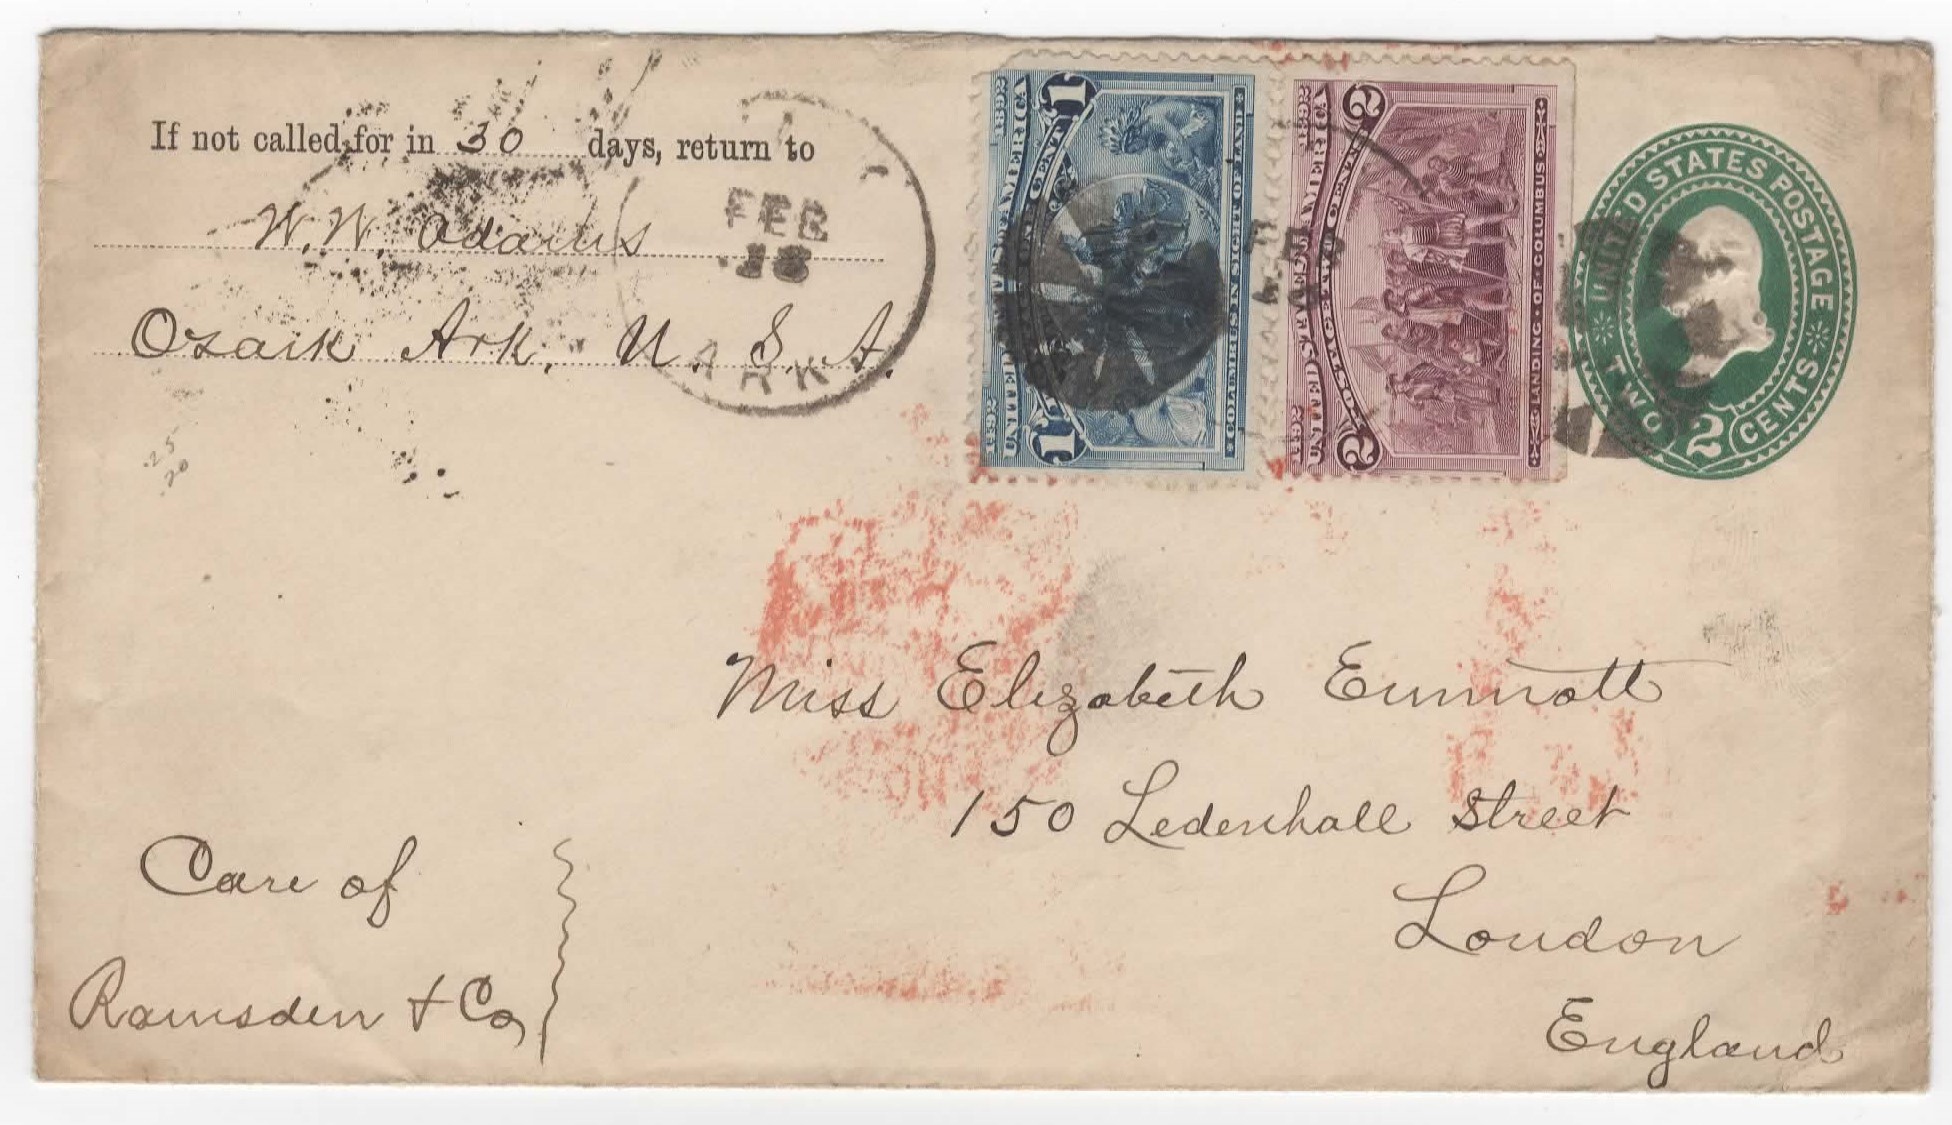 If not called for in 30 days, return to
W. W. Adams
Ozark Ark, U. S. A.
FEB
18
ARK
25
20
1892 UNITED STATES OF AMERICA 1892
1 ONE CENT 1
COLUMBUS IN SIGHT OF LAND
1892 UNITED STATES OF AMERICA 1892
2 TWO CENTS 2
LANDING OF COLUMBUS
UNITED STATES POSTAGE
TWO 2 CENTS
Miss Elizabeth Emmott
150 Ledenhall Street
London
England
Care of
Ramsden + Co,